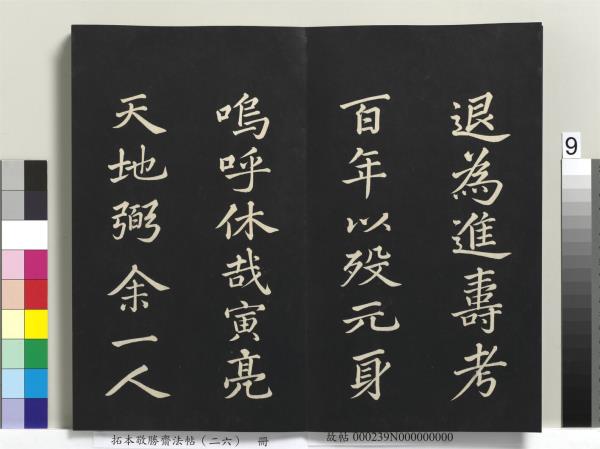 退為進壽考
百年以歿元身
嗚呼休哉寅亮
天地弼余一人
9
拓本敬勝齋法帖(二六) 冊
故帖 000239N000000000